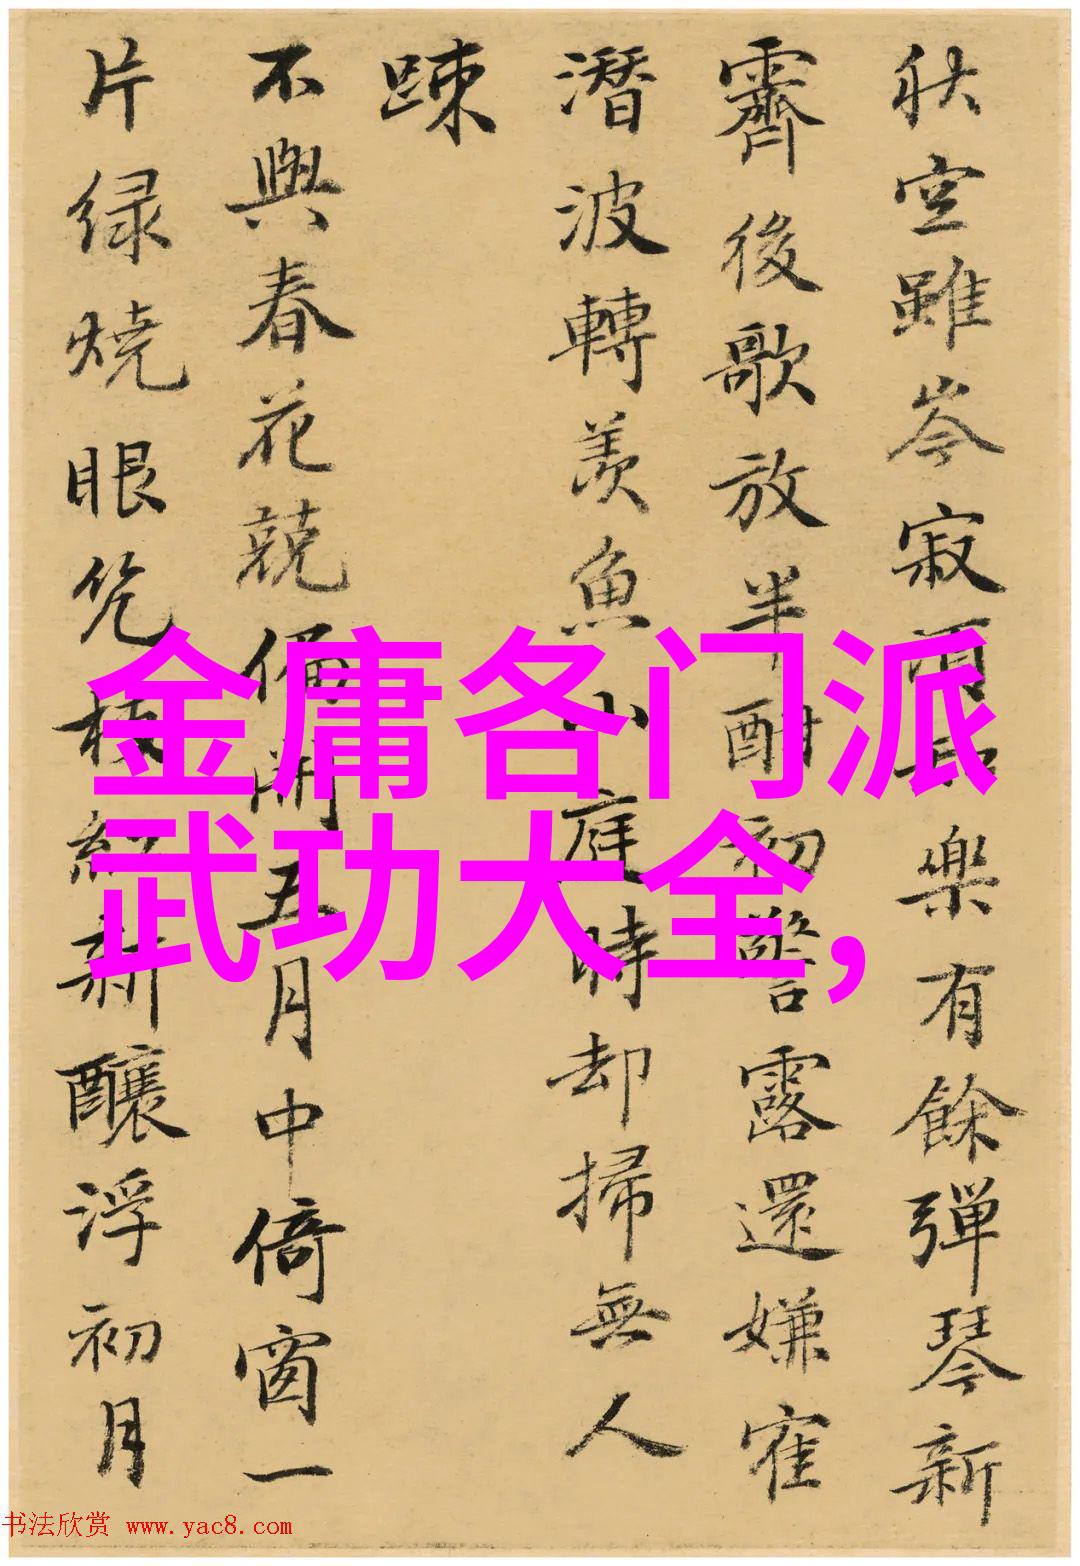 秋空雖岑寂樂有餘彈琴新
霽後歌放半酣初警露還嫌寉
潛波轉羨魚小庭時却掃無人
踈
不與春花競偏開五月中倚窗一
片绿燒眼枝紅新釀浮初月
金庸各门派
武功大全,
书法欣赏 www.yac8.com